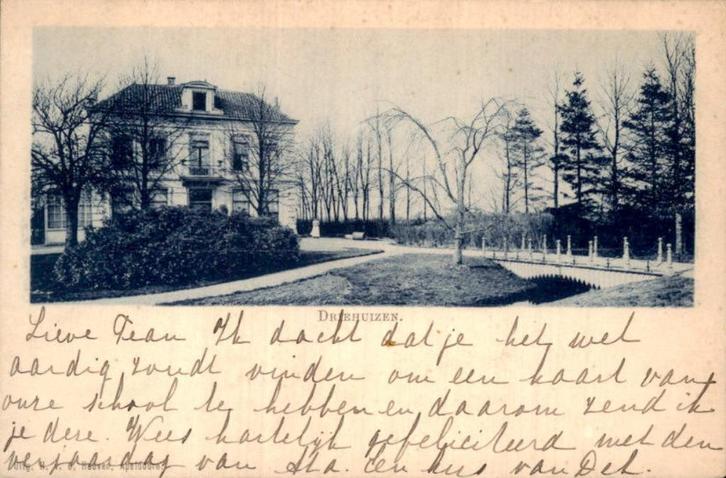 DRIEHUIZEN.
Lieve Jean Ik dacht dat je het wel
aardig zoudt vinden om een kaart van
onze school te hebben en daarom zend ik
je deze. Wees hartelijk gefeliciteerd met den
verjaardag van Ata. Een kus van Det.